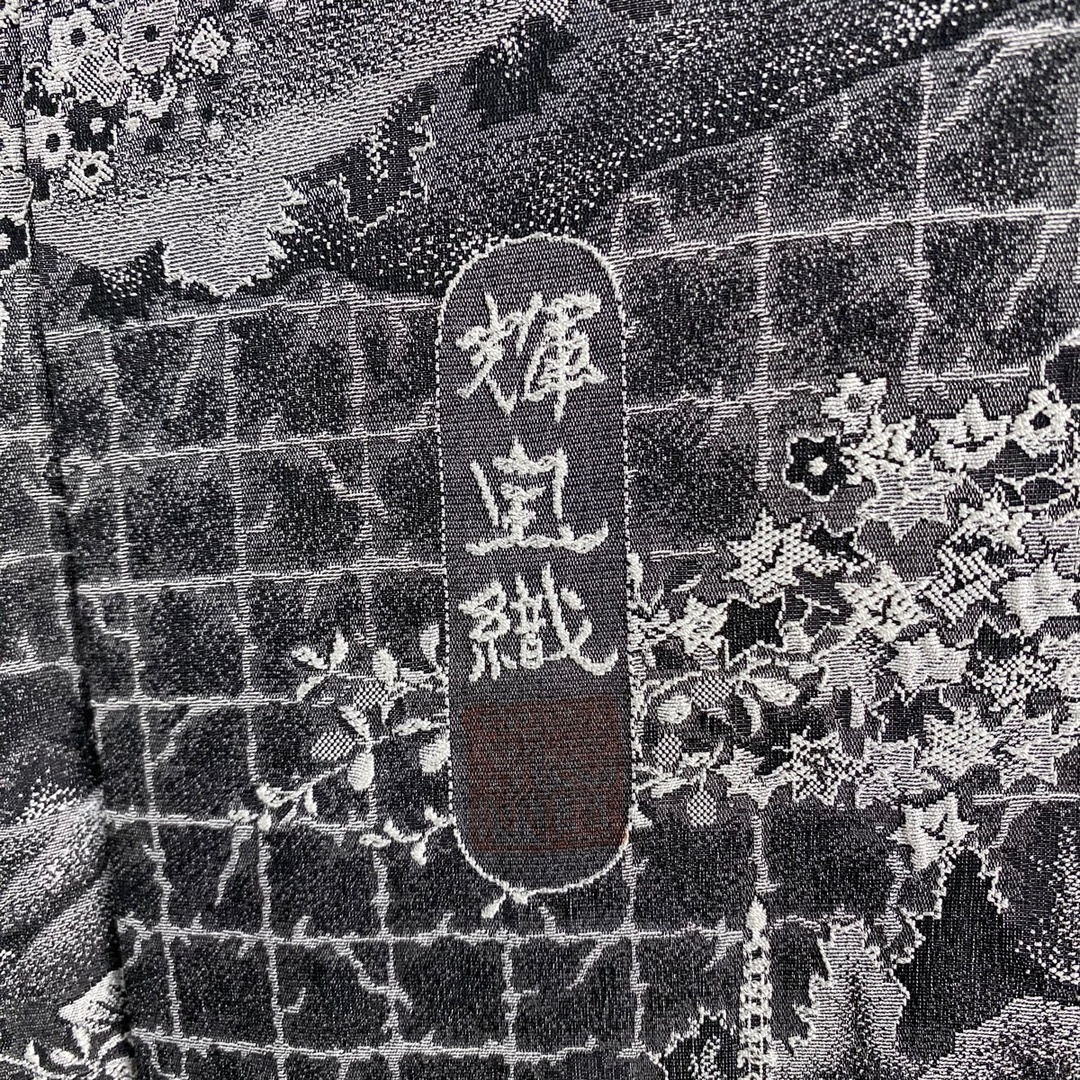 輝凰織